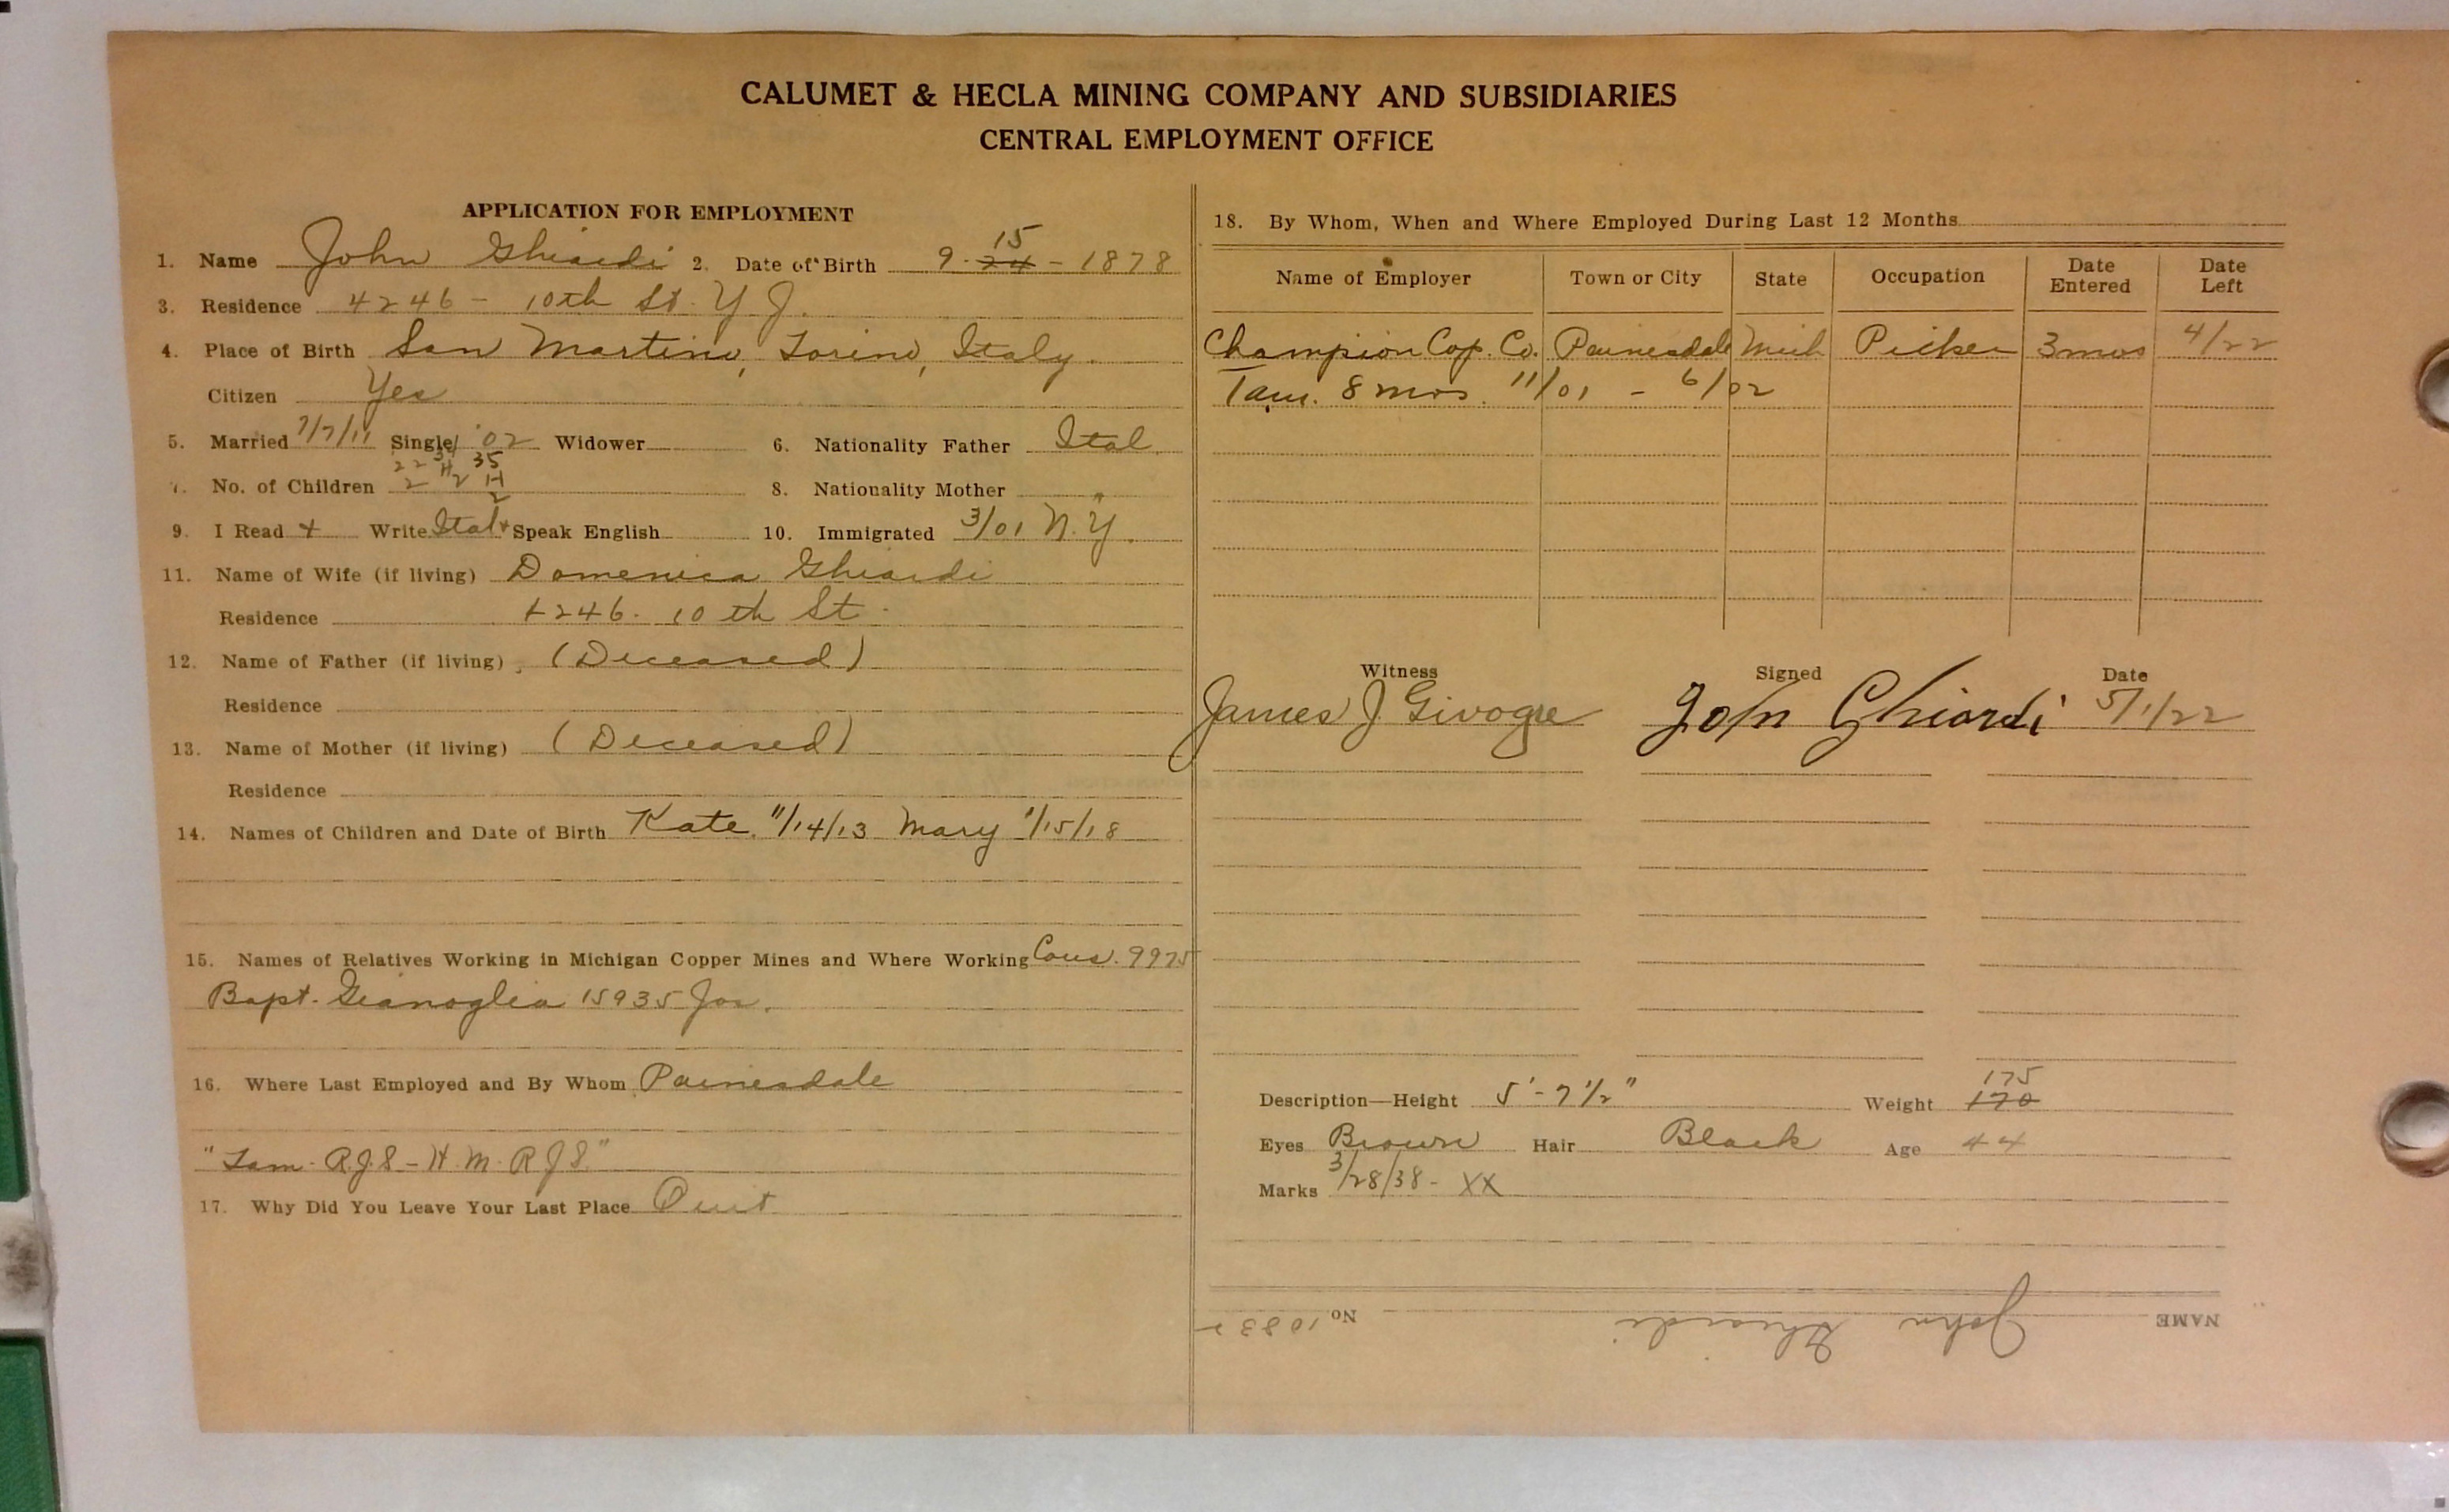 CALUMET & HECLA MINING COMPANY AND SUBSIDIARIES
CENTRAL EMPLOYMENT OFFICE
APPLICATION FOR EMPLOYMENT
1. Name John Ghiardi 2. Date of Birth 9-24-1878
15
3. Residence 4246 - 10th St. Y J.
4. Place of Birth San Martino, Torino, Italy.
Citizen Yes
5. Married 7/7/11 Single '02 Widower 6. Nationality Father Ital.
22 34 35
7. No. of Children 2 H2 H2 8. Nationality Mother "
9. I Read + Write Ital + Speak English 10. Immigrated 3/01 N.Y.
11. Name of Wife (if living) Domenica Ghiardi
Residence 4246. 10th St.
12. Name of Father (if living) (Deceased)
Residence
13. Name of Mother (if living) (Deceased)
Residence
14. Names of Children and Date of Birth Kate. 11/14/13 Mary 1/15/18
15. Names of Relatives Working in Michigan Copper Mines and Where Working Cous. 9975
Bapt. Gianoglia 15935 Jos.
16. Where Last Employed and By Whom Painesdale
"Tam. R.J.S - H.M. R J S."
17. Why Did You Leave Your Last Place Quit
18. By Whom, When and Where Employed During Last 12 Months
Name of Employer Town or City State Occupation Date Entered Date Left
Champion Cop. Co. Painesdale Mich Picker 3 mos 4/22
Tam. 8 mos. 11/01 - 6/02
Witness Signed Date
James J Givogre John Ghiardi 5/1/22
Description—Height 5'-7 1/2" Weight 170
175
Eyes Brown Hair Black Age 44
Marks 3/28/38 - XX
NAME John Ghiardi No 10832